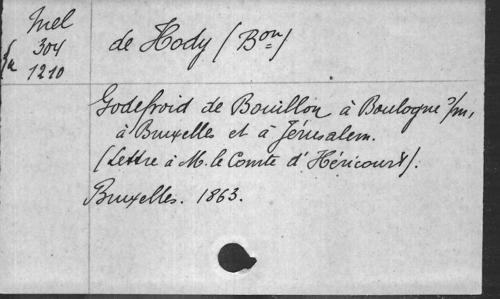 Mel
304
1210
de Hody (Bon)
Godefroid de Bouillon à Boulogne s/m,
à Bruxelles et à Jérusalem.
(Lettre à M. le Comte d'Héricourt).
Bruxelles. 1863.